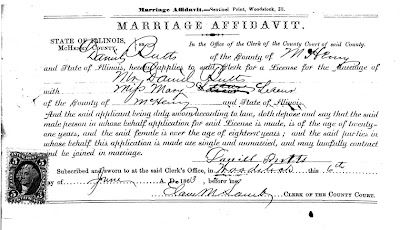 Marriage Affidavit.—Sentinel Print, Woodstock, Ill.
MARRIAGE AFFIDAVIT.
STATE OF ILLINOIS,
McHenry County, ss. In the Office of the Clerk of the County Court of said County.
Daniel Butts of the County of McHenry
and State of Illinois, hereby applies to said Clerk for a License for the Marriage of
Mr. Daniel Butts
with Miss Mary
of the County of McHenry and State of Illinois
And the said applicant being duly sworn according to law, doth depose and say that the said
male person in whose behalf application for said License is made, is of the age of twenty-
one years, and the said female is over the age of eighteen years; and the said parties in
whose behalf, this application is made use single and unmarried, and may lawfully contract
and be joined in marriage.
Daniel Butts
Subscribed and sworn to at the said Clerk's Office, in Woodstock this 6th
day of June A. D. 186 before me,
CLERK OF THE COUNTY COURT.